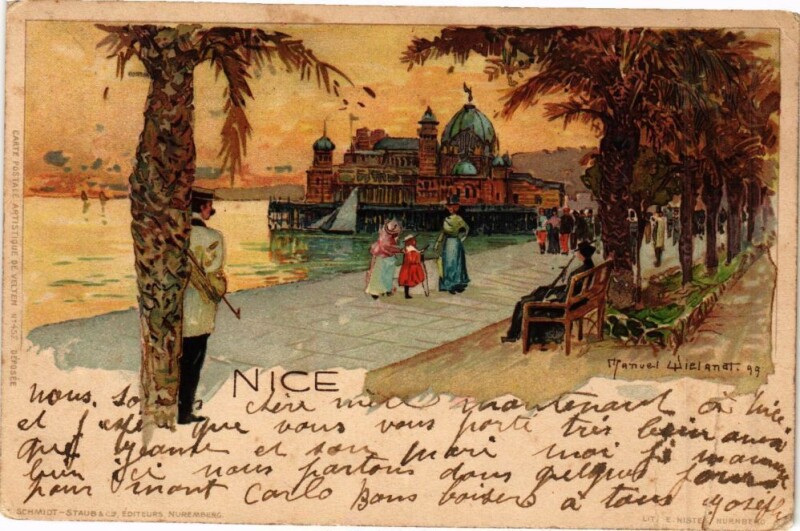 CARTE POSTALE ARTISTIQUE DE VELTEN Nº 407 DÉPOSÉE
Manuel Wielandt. 99
NICE
nous, so chère mère maintenant à Nice
et j'espère que vous vous porté très bien ainsi
que Jeanne et son mari moi je
bien ici nous partons dans quelque jours
pour mont Carlo Bons baisers à tous Joseph
SCHMIDT-STAUB & Co., ÉDITEURS, NUREMBERG
LIT. E. NISTER, NURNBERG